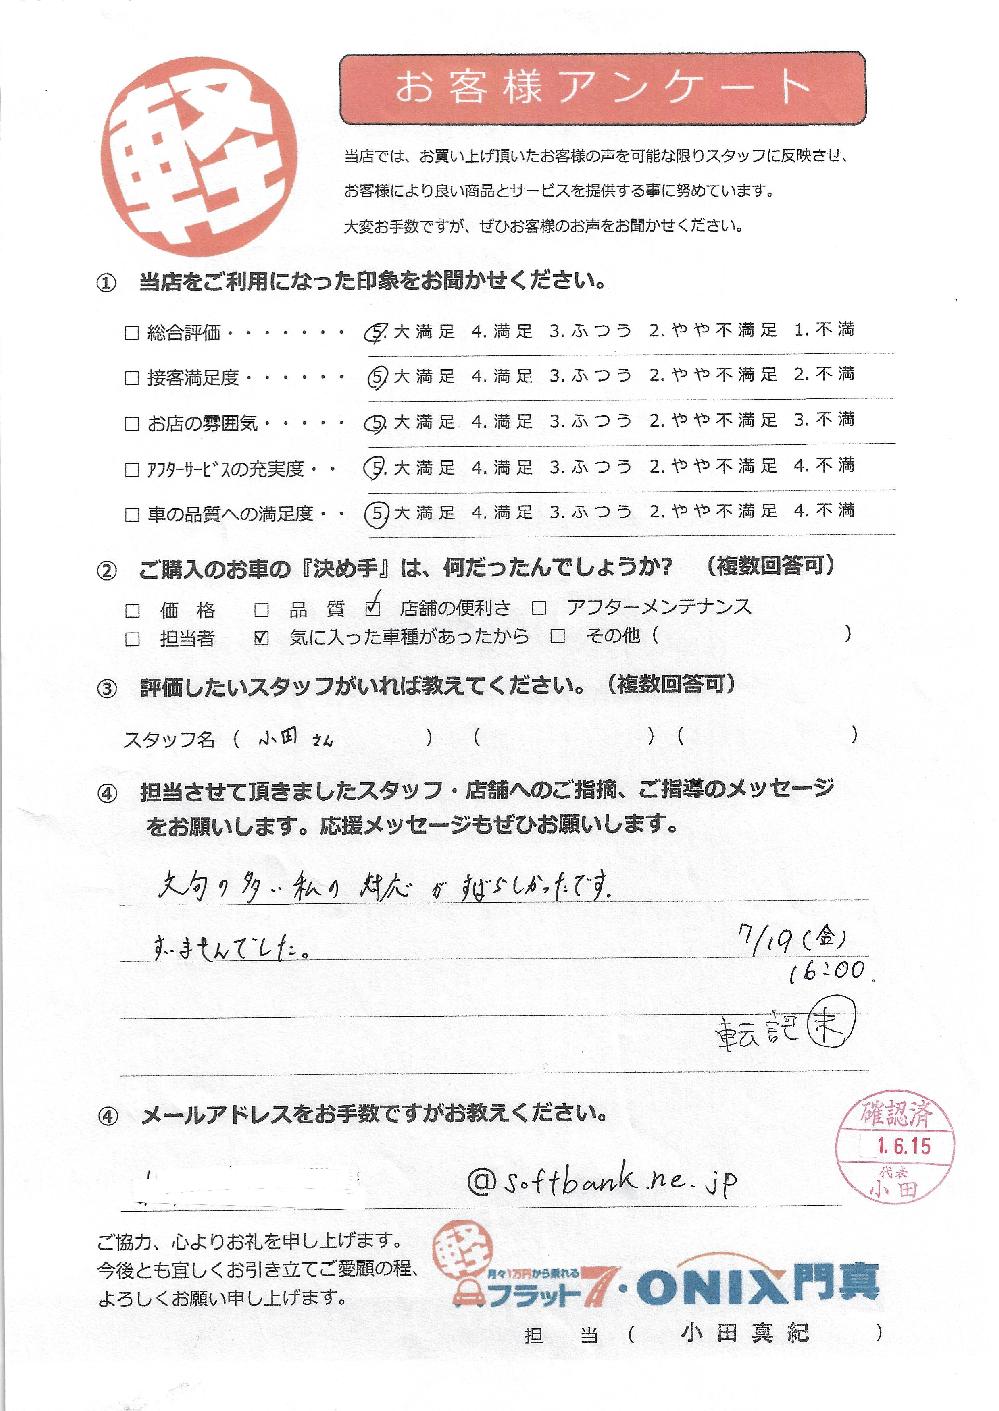 軽
お客様アンケート
当店では、お買い上げ頂いたお客様の声を可能な限りスタッフに反映させ、
お客様により良い商品とサービスを提供する事に努めています。
大変お手数ですが、ぜひお客様のお声をお聞かせください。
① 当店をご利用になった印象をお聞かせください。
□ 総合評価・・・・・・・ 5. 大満足 4. 満足 3. ふつう 2. やや不満足 1. 不満
□ 接客満足度・・・・・・ 5 大満足 4. 満足 3. ふつう 2. やや不満足 2. 不満
□ お店の雰囲気・・・・・ 5. 大満足 4. 満足 3. ふつう 2. やや不満足 3. 不満
□ ｱﾌﾀｰｻｰﾋﾞｽの充実度・・ 5. 大満足 4. 満足 3. ふつう 2. やや不満足 4. 不満
□ 車の品質への満足度・・ 5 大満足 4. 満足 3. ふつう 2. やや不満足 4. 不満
② ご購入のお車の『決め手』は、何だったんでしょうか? (複数回答可)
□ 価格 □ 品質 ☑ 店舗の便利さ □ アフターメンテナンス
□ 担当者 ☑ 気に入った車種があったから □ その他 ( )
③ 評価したいスタッフがいれば教えてください。(複数回答可)
スタッフ名 ( 小田さん ) ( ) ( )
④ 担当させて頂きましたスタッフ・店舗へのご指摘、ご指導のメッセージ
をお願いします。応援メッセージもぜひお願いします。
文句の多い私の対応がすばらしかったです.
すいませんでした。
7/19(金)
16:00.
転記 末
④ メールアドレスをお手数ですがお教えください。
@softbank.ne.jp
確認済
1.6.15
代表
小田
ご協力、心よりお礼を申し上げます。
今後とも宜しくお引き立てご愛顧の程、
よろしくお願い申し上げます。
軽
月々1万円から乗れる
フラット7・ONIX門真
担当 ( 小田真紀 )